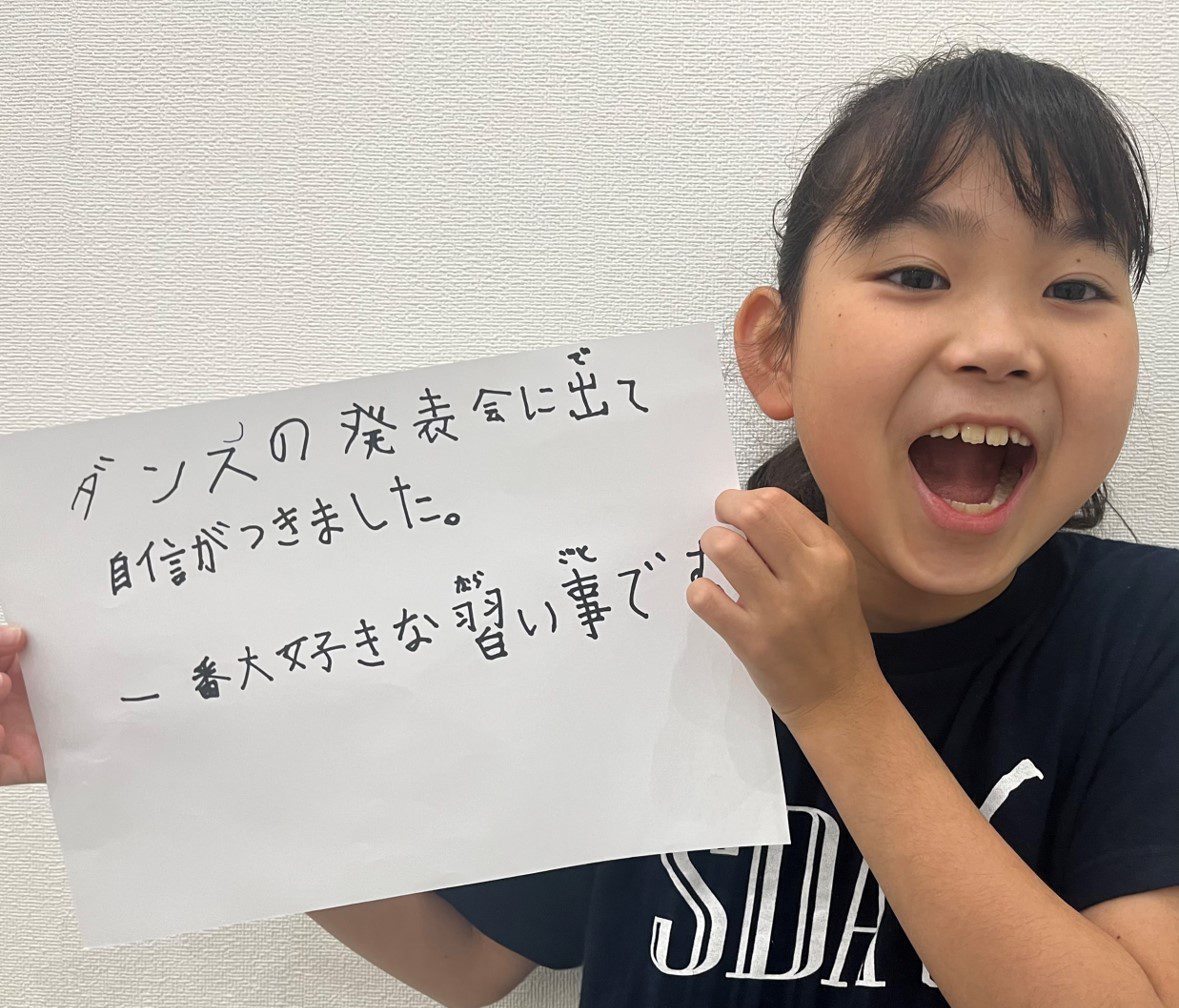 ダンスの発表会に出て
自信がつきました。
一番大好きな習い事です
SDA